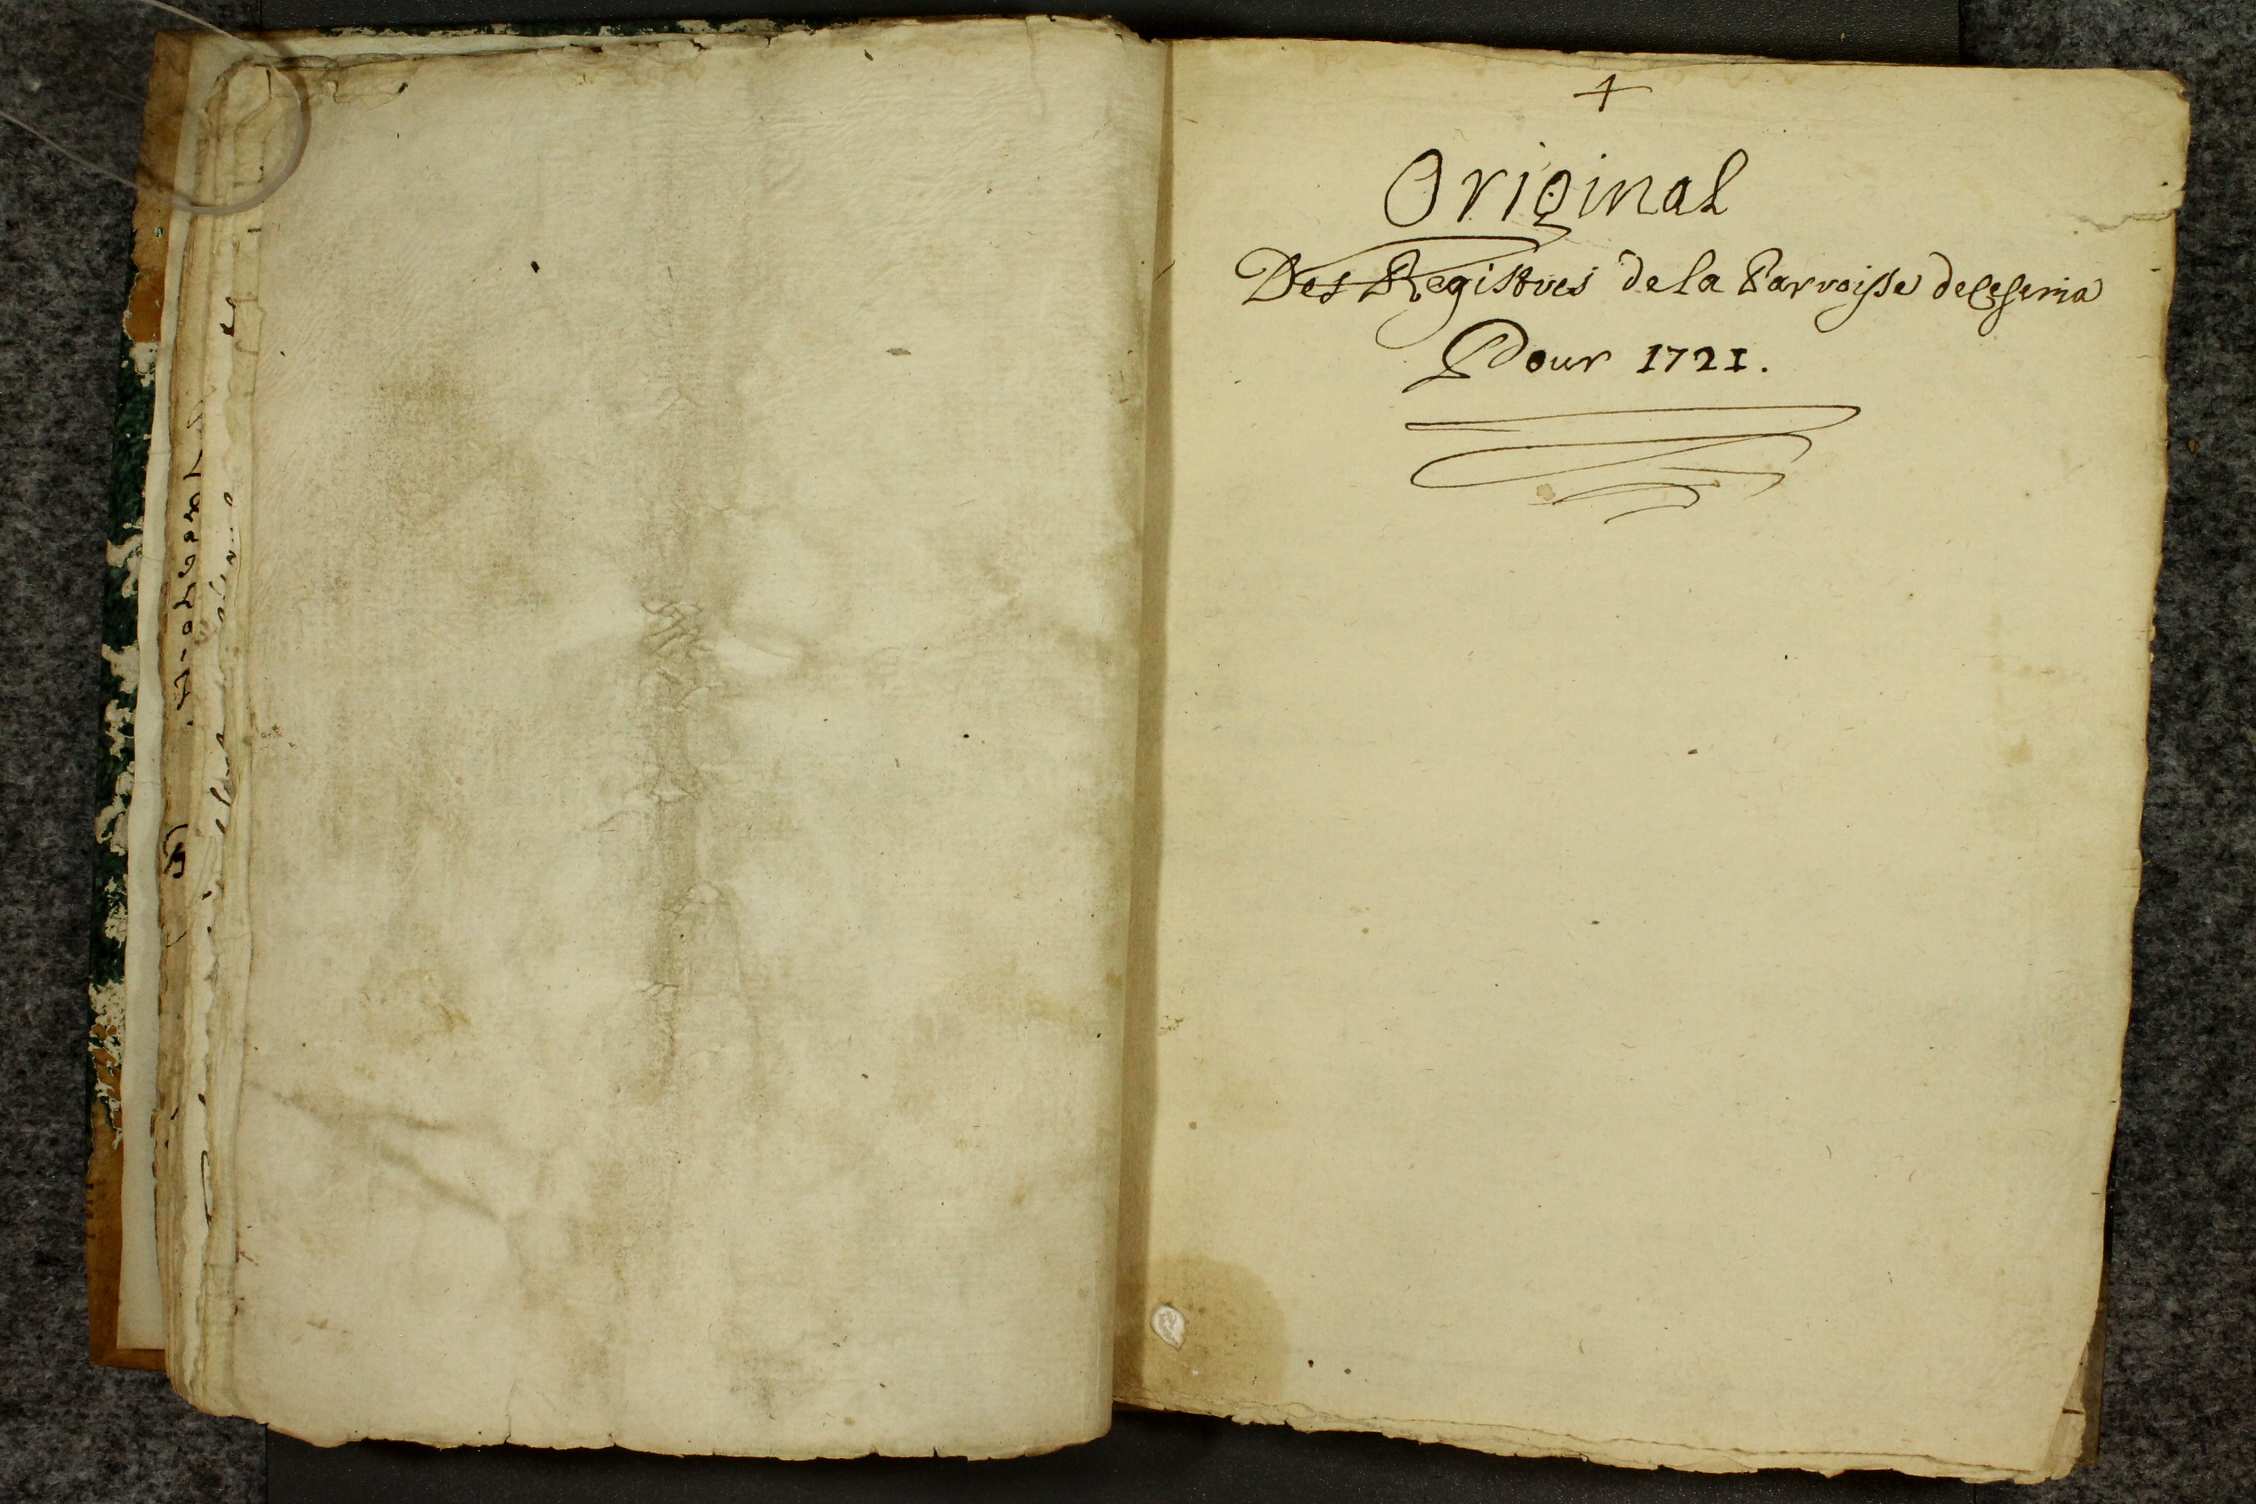 +
Original
Des Registres de la Parroisse de Ceseria
Pour 1721.